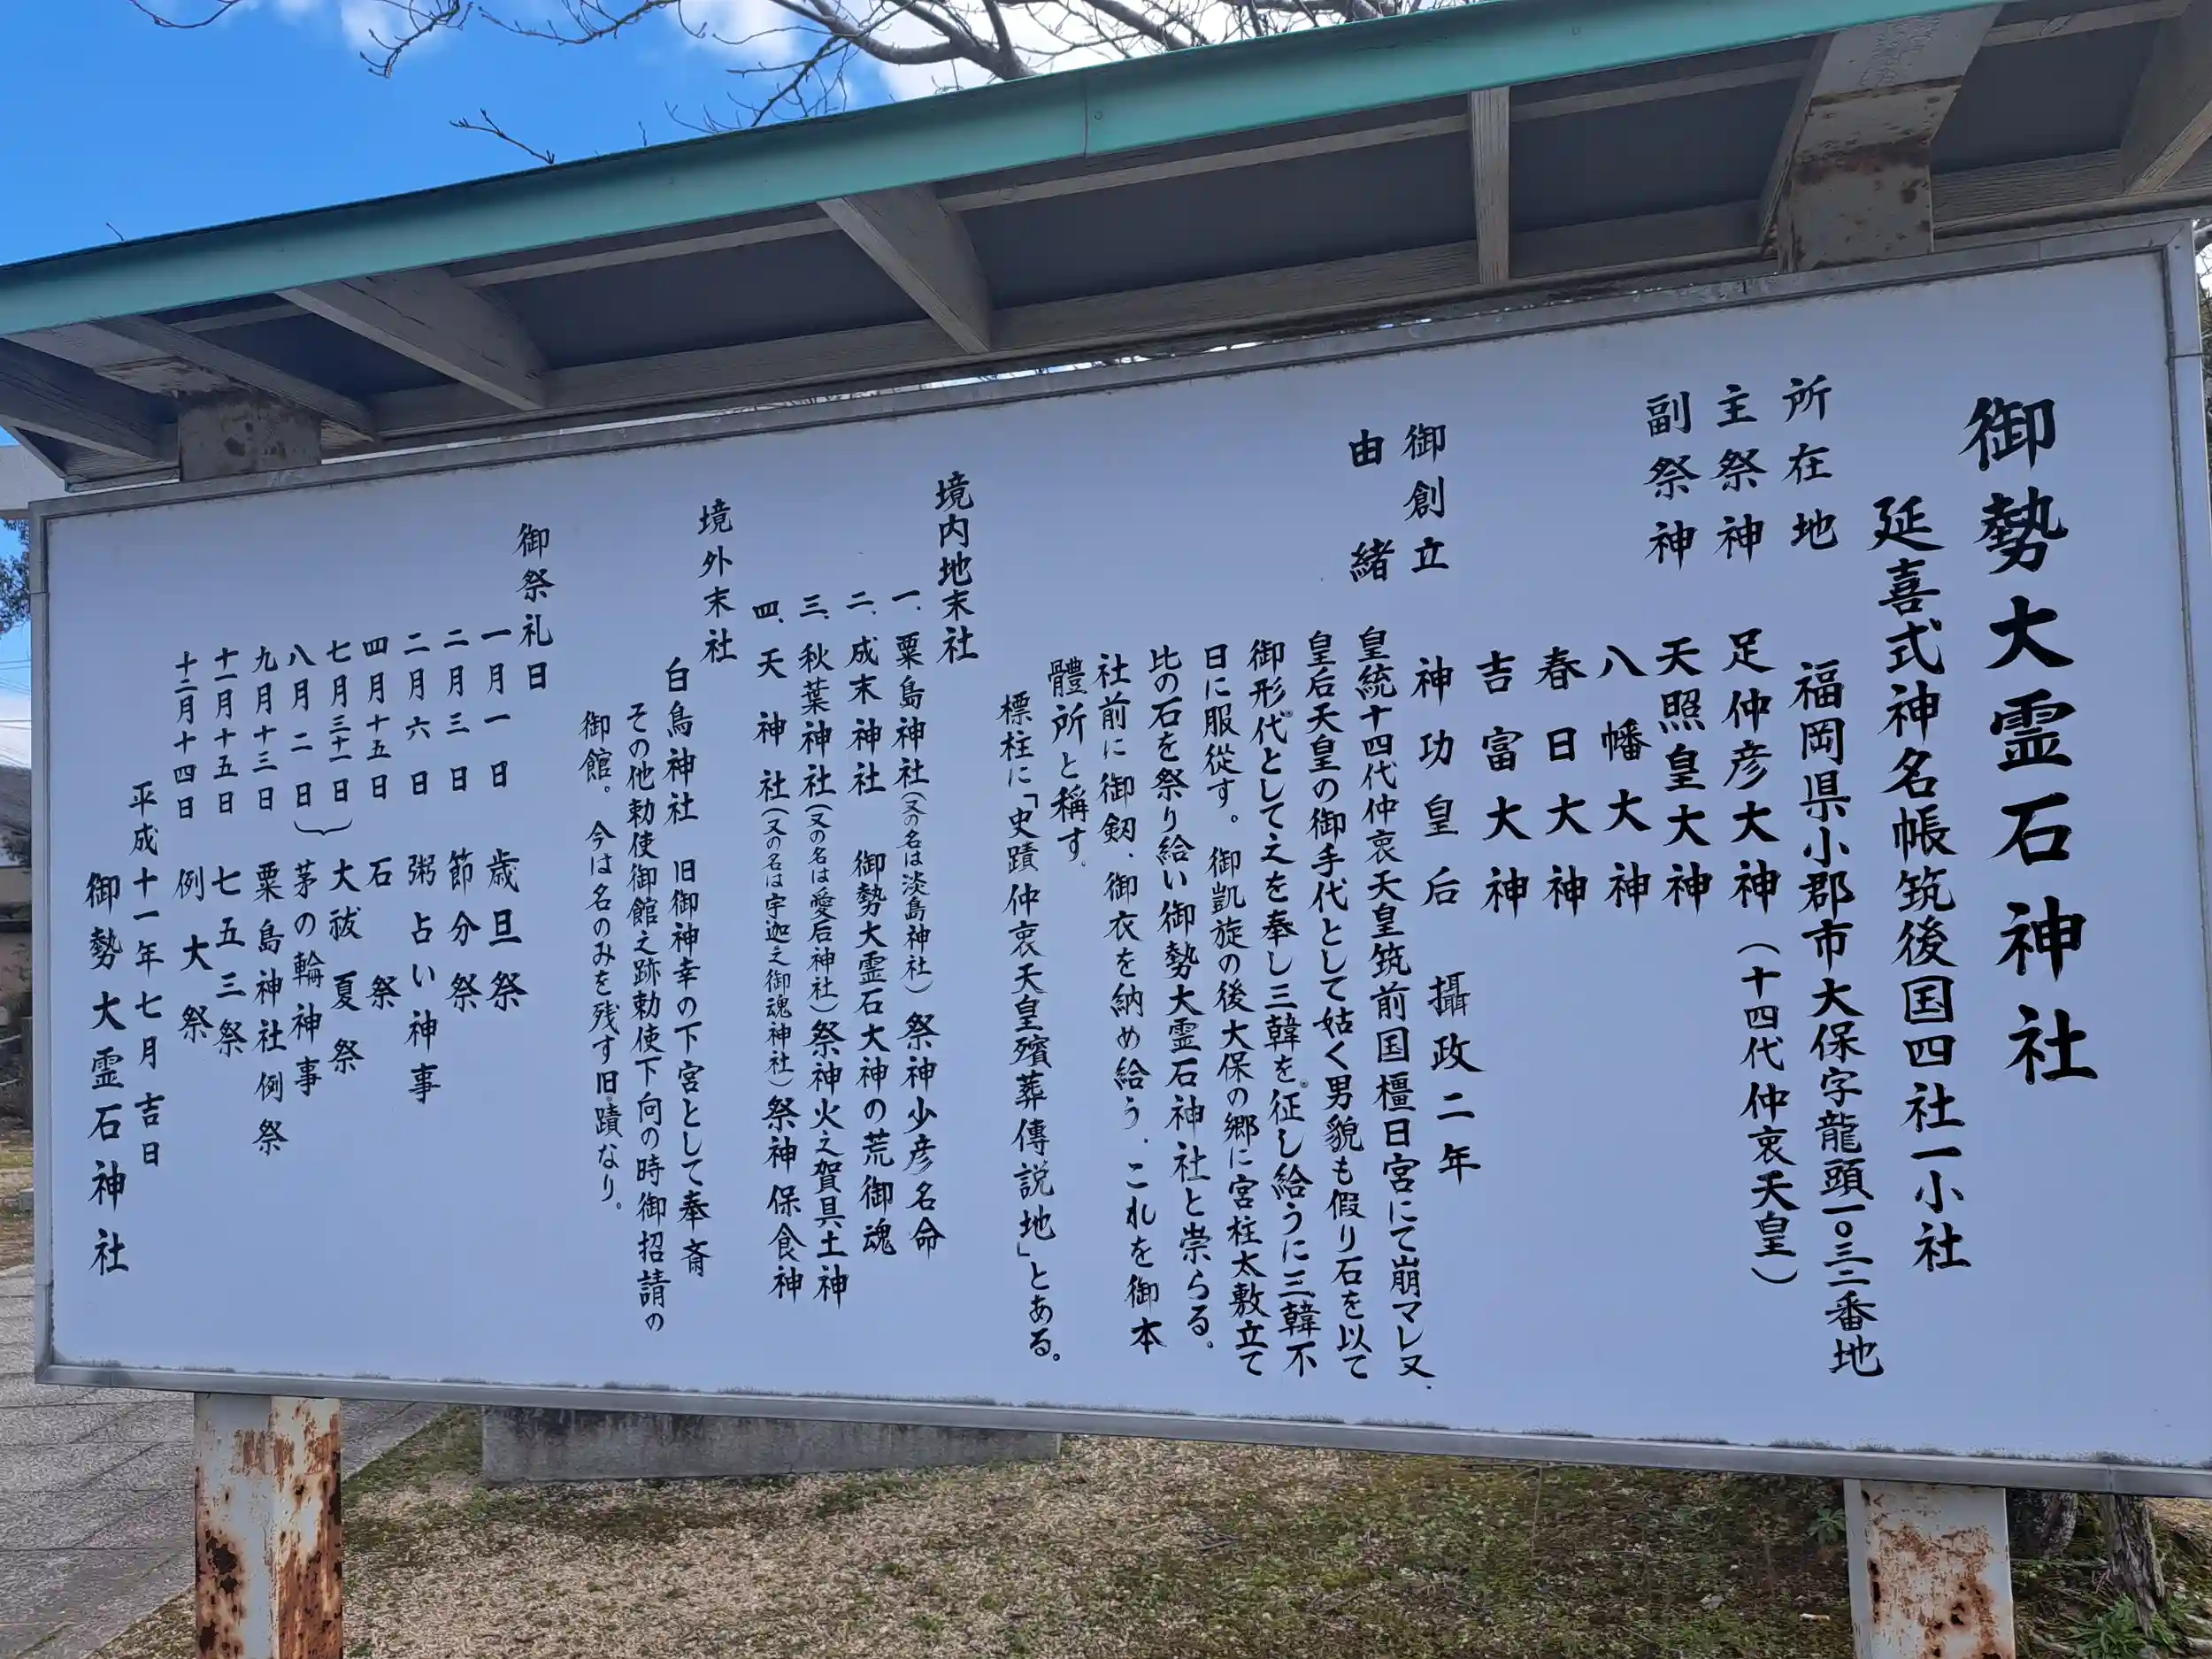 御勢大霊石神社
延喜式神名帳筑後国四社一小社
所在地 福岡県小郡市大保字龍頭一〇三二番地
主祭神 足仲彦大神(十四代仲哀天皇)
副祭神 天照皇大神
八幡大神
春日大神
吉富大神
御創立 神功皇后 攝政二年
由緒 皇統十四代仲哀天皇筑前国橿日宮にて崩マレ又、
皇后天皇の御手代として姑く男貌も假り石を以て
御形代として之を奉し三韓を征し給うに三韓不
日に服従す。御凱旋の後大保の郷に宮柱太敷立て
比の石を祭り給い御勢大霊石神社と崇らる。
社前に御剱、御衣を納め給う、これを御本
體所と稱す。
標柱に「史蹟仲哀天皇殯葬傳説地」とある。
境内地末社
一、粟島神社(又の名は淡島神社)祭神少彦名命
二、成末神社 御勢大霊石大神の荒御魂
三、秋葉神社(又の名は愛后神社)祭神火之賀具土神
四、天神社(又の名は宇迦之御魂神社)祭神保食神
境外末社
白鳥神社 旧御神幸の下宮として奉斎
その他勅使御館之跡勅使下向の時御招請の
御館。今は名のみを残す旧蹟なり。
御祭礼日
一月一日 歳旦祭
二月三日 節分祭
二月六日 粥占い神事
四月十五日 石祭
七月三十一日 大祓夏祭
八月二日 茅の輪神事
九月十三日 粟島神社例祭
十一月十五日 七五三祭
十二月十四日 例大祭
平成十一年七月吉日
御勢大霊石神社